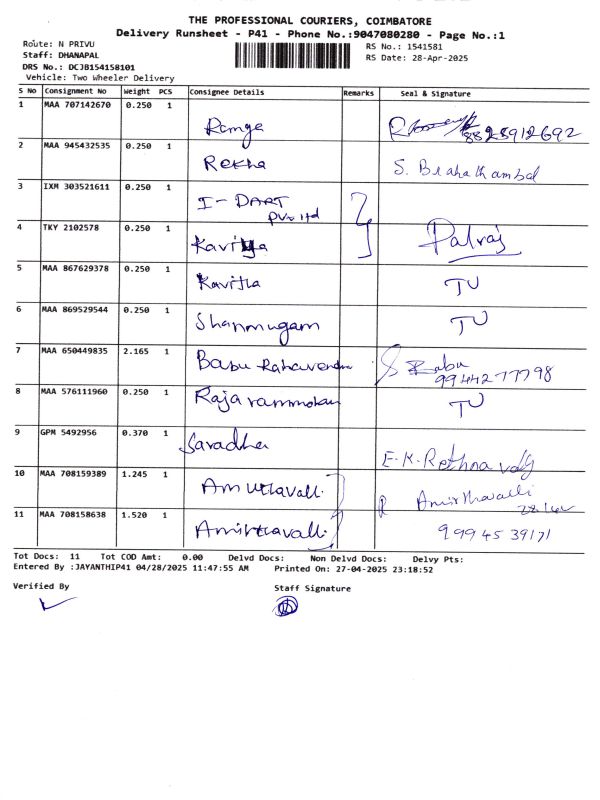 THE PROFESSIONAL COURIERS, COIMBATORE
Delivery Runsheet - P41 - Phone No.:9047080280 - Page No.:1
Route: N PRIVU
Staff: DHANAPAL
DRS No.: DCJB154158101
Vehicle: Two Wheeler Delivery
RS No.: 1541581
RS Date: 28-Apr-2025
S No Consignment No Weight PCS Consignee Details Remarks Seal & Signature
1 MAA 707142670 0.250 1 Ramya 8823912692
2 MAA 945432535 0.250 1 Rekha S. Brahathambal
3 IXM 303521611 0.250 1 I-DART
Pvt ltd
4 TKY 2102578 0.250 1 Kavitha Palraj
5 MAA 867629378 0.250 1 Kavitha TU
6 MAA 869529544 0.250 1 Shanmugam TU
7 MAA 650449835 2.165 1 Babu Rahavendra Babu
9944277798
8 MAA 576111960 0.250 1 Rajarammohan TU
9 GPM 5492956 0.370 1 Saradha E.K.Rethna
10 MAA 708159389 1.245 1 Amirthavalli Amirthavalli
11 MAA 708158638 1.520 1 Amirthavalli 9994539171
Tot Docs: 11 Tot COD Amt: 0.00 Delvd Docs: Non Delvd Docs: Delvy Pts:
Entered By :JAYANTHIP41 04/28/2025 11:47:55 AM Printed On: 27-04-2025 23:18:52
Verified By Staff Signature